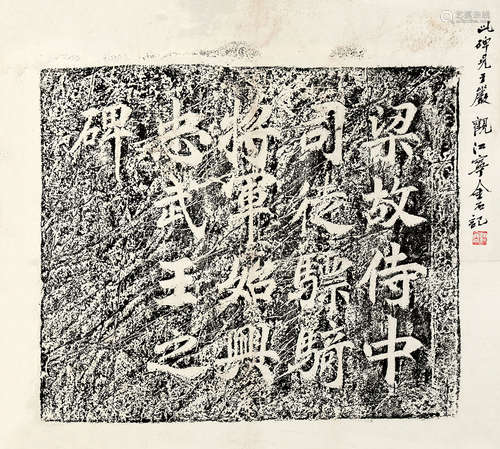 此碑見王嚴觀江寧金石記
梁故侍中
司徒驃騎
將軍始興
忠武王之
碑